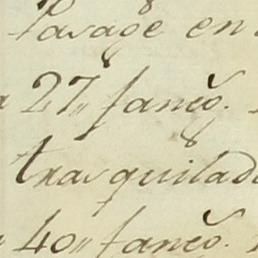 Pasage en
27,, fanēg.
trasquilad
40,, fanēg.